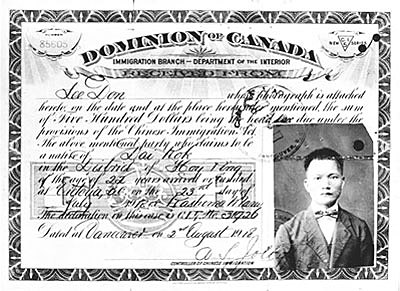 85505
C.I.5
NEW SERIES
DOMINION OF CANADA
IMMIGRATION BRANCH – DEPARTMENT OF THE INTERIOR
RECEIVED FROM
Lee Don whose photograph is attached
hereto, on the date and at the place hereunder mentioned, the sum
of Five Hundred Dollars being head tax due under the
provisions of the Chinese Immigration Act.
The above mentioned party who claims to be
a native of Lai Kok
in the District of Hoy Ping
of the age of 22 years arrived or landed
at Victoria BC on the 23rd day of
July 1918
The declaration in this case is C.I.4. No.
Dated at Vancouver on 2nd August 1918
CONTROLLER OF CHINESE IMMIGRATION